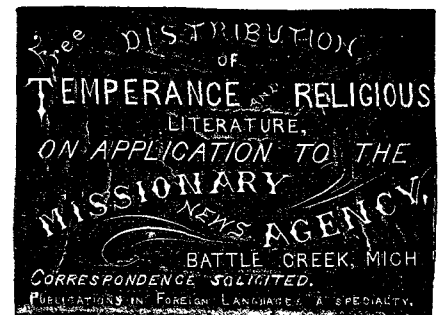 Free DISTRIBUTION
OF
TEMPERANCE AND RELIGIOUS
LITERATURE,
ON APPLICATION TO THE
MISSIONARY
NEWS AGENCY,
BATTLE CREEK, MICH
CORRESPONDENCE SOLICITED.
PUBLICATIONS IN FOREIGN LANGUAGES A SPECIALTY.